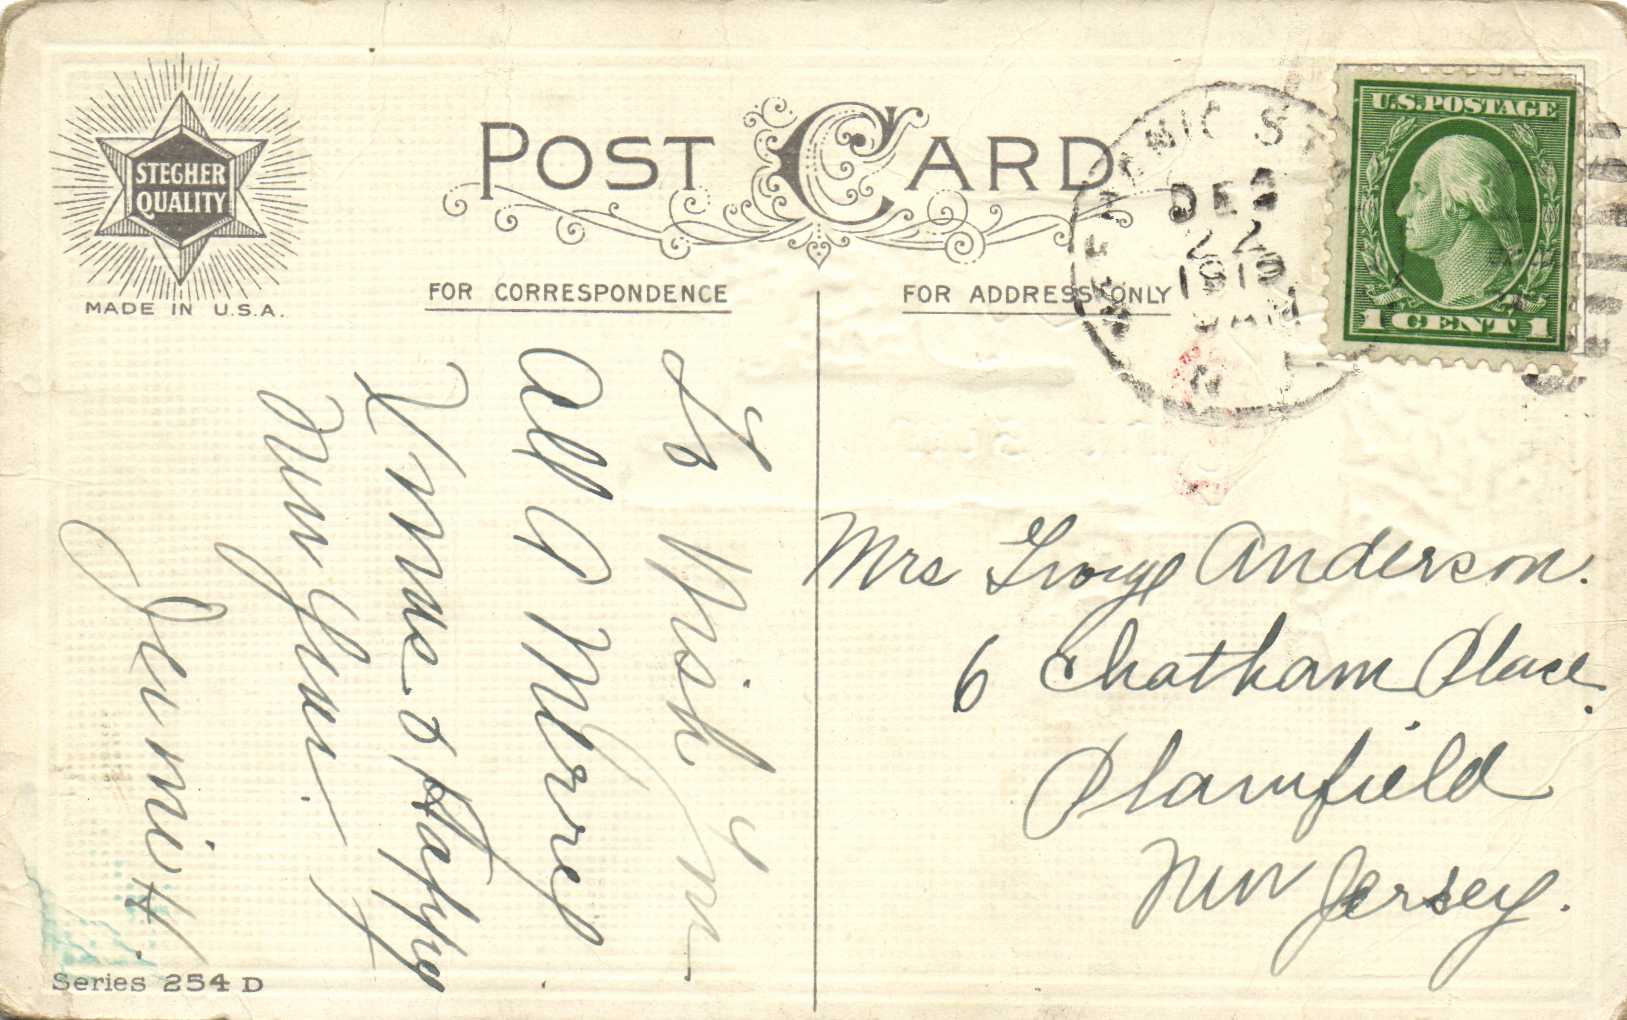 STEGHER
QUALITY
MADE IN U.S.A.
POST CARD
FOR CORRESPONDENCE
FOR ADDRESS ONLY
DEC
22
N
U.S.POSTAGE
1 CENT 1
To Wish You
All A Merry
Xmas & Happy
New Year.
Mrs George Anderson.
6 Chatham Place.
Plainfield
New Jersey.
Series 254 D